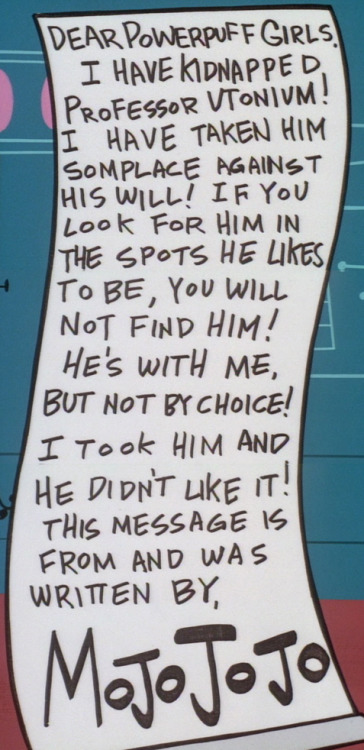 DEAR POWERPUFF GIRLS.
I HAVE KIDNAPPED
PROFESSOR UTONIUM!
I HAVE TAKEN HIM
SOMPLACE AGAINST
HIS WILL! IF YOU
LOOK FOR HIM IN
THE SPOTS HE LIKES
TO BE, YOU WILL
NOT FIND HIM!
HE'S WITH ME,
BUT NOT BY CHOICE!
I TOOK HIM AND
HE DIDN'T LIKE IT!
THIS MESSAGE IS
FROM AND WAS
WRITTEN BY,
MOJO JOJO